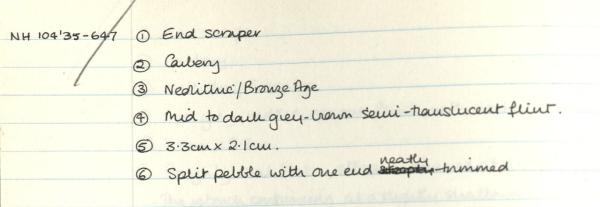 NH 104'35-647 ① End scraper
② Carbery
③ Neolithic/Bronze Age
④ Mid to dark grey-brown semi-translucent flint.
⑤ 3.3cm x 2.1cm.
⑥ Split pebble with one end neatly trimmed